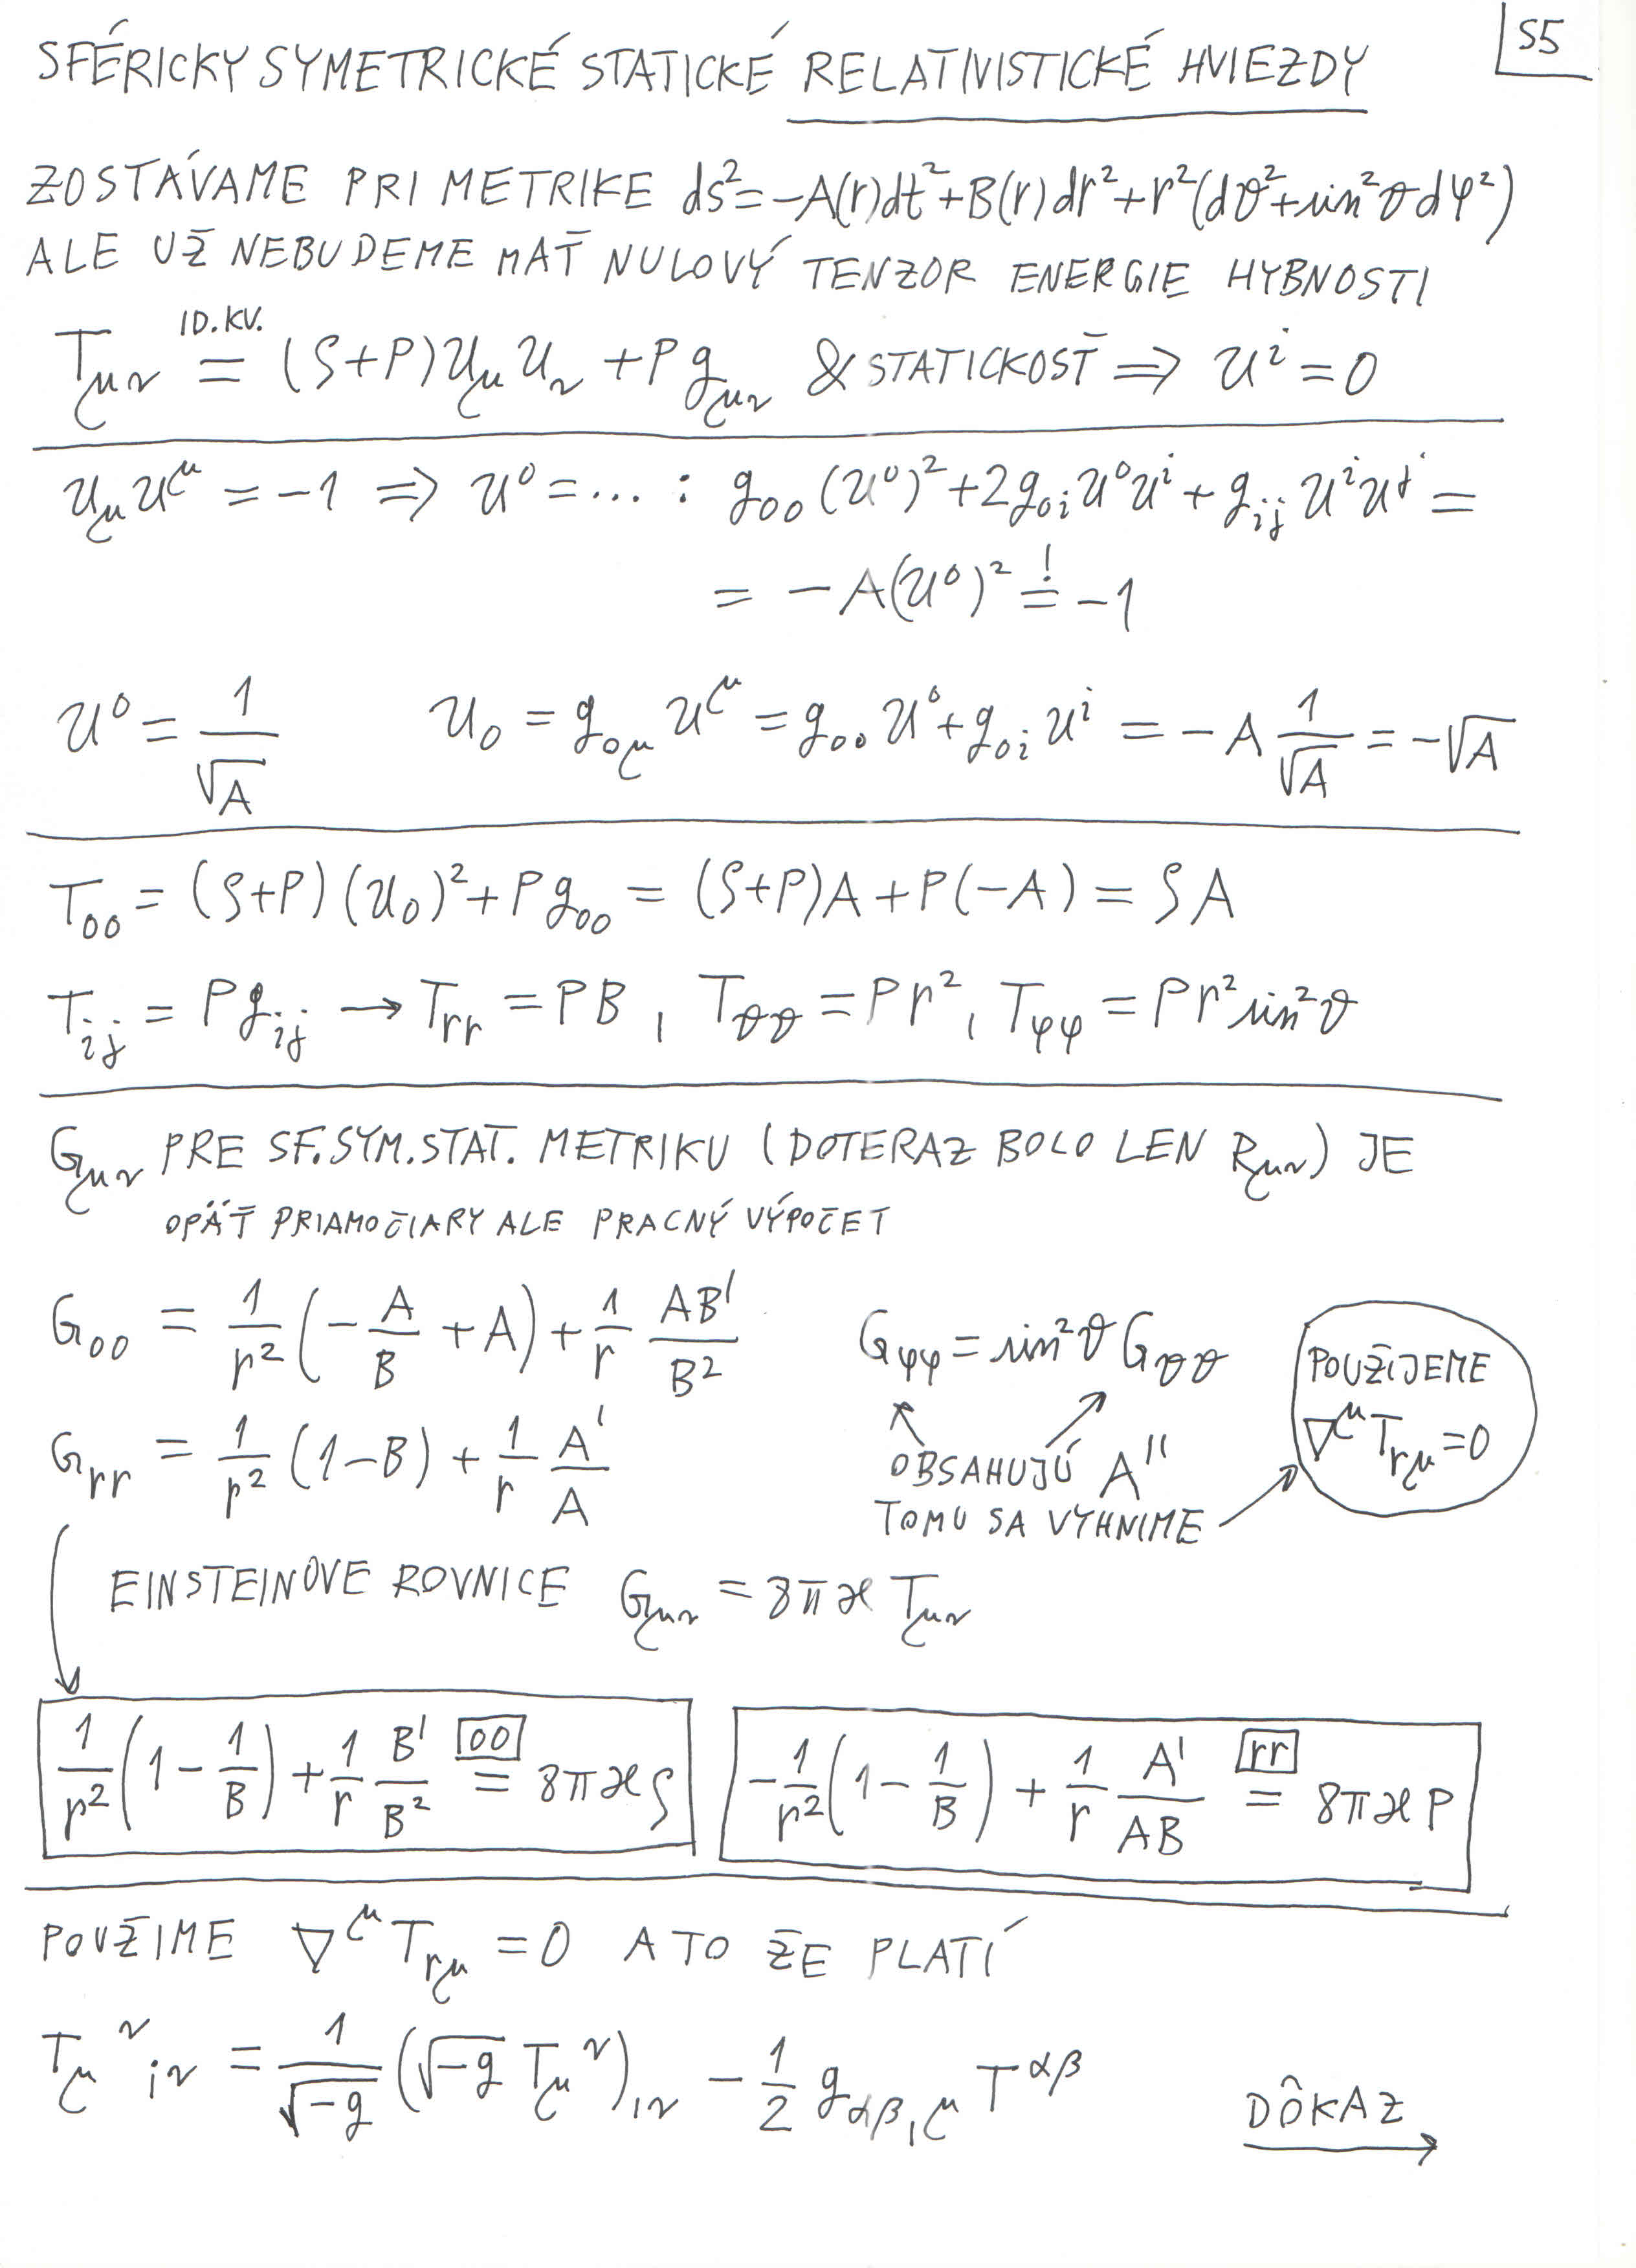 SFÉRICKY SYMETRICKÉ STATICKÉ RELATIVISTICKÉ HVIEZDY
S5
ZOSTÁVAME PRI METRIKE ds²=-A(r)dt²+B(r)dr²+r²(dϑ²+sin²ϑdφ²)
ALE UŽ NEBUDEME MAŤ NULOVÝ TENZOR ENERGIE HYBNOSTI
T_μν =^{ID.KV.} (ρ+P)U_μ U_ν + P g_μν & STATICKOSŤ ⇒ U^i = 0
U_μ U^μ = -1 ⇒ U^0 = ... : g_00 (U^0)² + 2g_0i U^0 U^i + g_ij U^i U^j =
= -A(U^0)² =^! -1
U^0 = 1/√A    U_0 = g_0μ U^μ = g_00 U^0 + g_0i U^i = -A 1/√A = -√A
T_00 = (ρ+P)(U_0)² + P g_00 = (ρ+P)A + P(-A) = ρA
T_ij = P g_ij → T_rr = PB, T_ϑϑ = Pr², T_φφ = Pr² sin²ϑ
G_μν PRE SF.SYM.STAT. METRIKU (DOTERAZ BOLO LEN R_μν) JE
OPÄŤ PRIAMOČIARY ALE PRACNÝ VÝPOČET
G_00 = 1/r² (-A/B + A) + 1/r AB'/B²
G_rr = 1/r² (1-B) + 1/r A'/A
G_φφ = sin²ϑ G_ϑϑ
OBSAHUJÚ A''
TOMU SA VYHNIME
POUŽIJEME
∇^μ T_rμ = 0
EINSTEINOVE ROVNICE G_μν = 8πϰ T_μν
1/r² (1 - 1/B) + 1/r B'/B² =^{00} 8πϰρ
-1/r² (1 - 1/B) + 1/r A'/AB =^{rr} 8πϰP
POUŽIME ∇^μ T_rμ = 0 A TO ŽE PLATÍ
T_μ^ν_;ν = 1/√-g (√-g T_μ^ν)_,ν - 1/2 g_αβ,μ T^αβ
DÔKAZ →